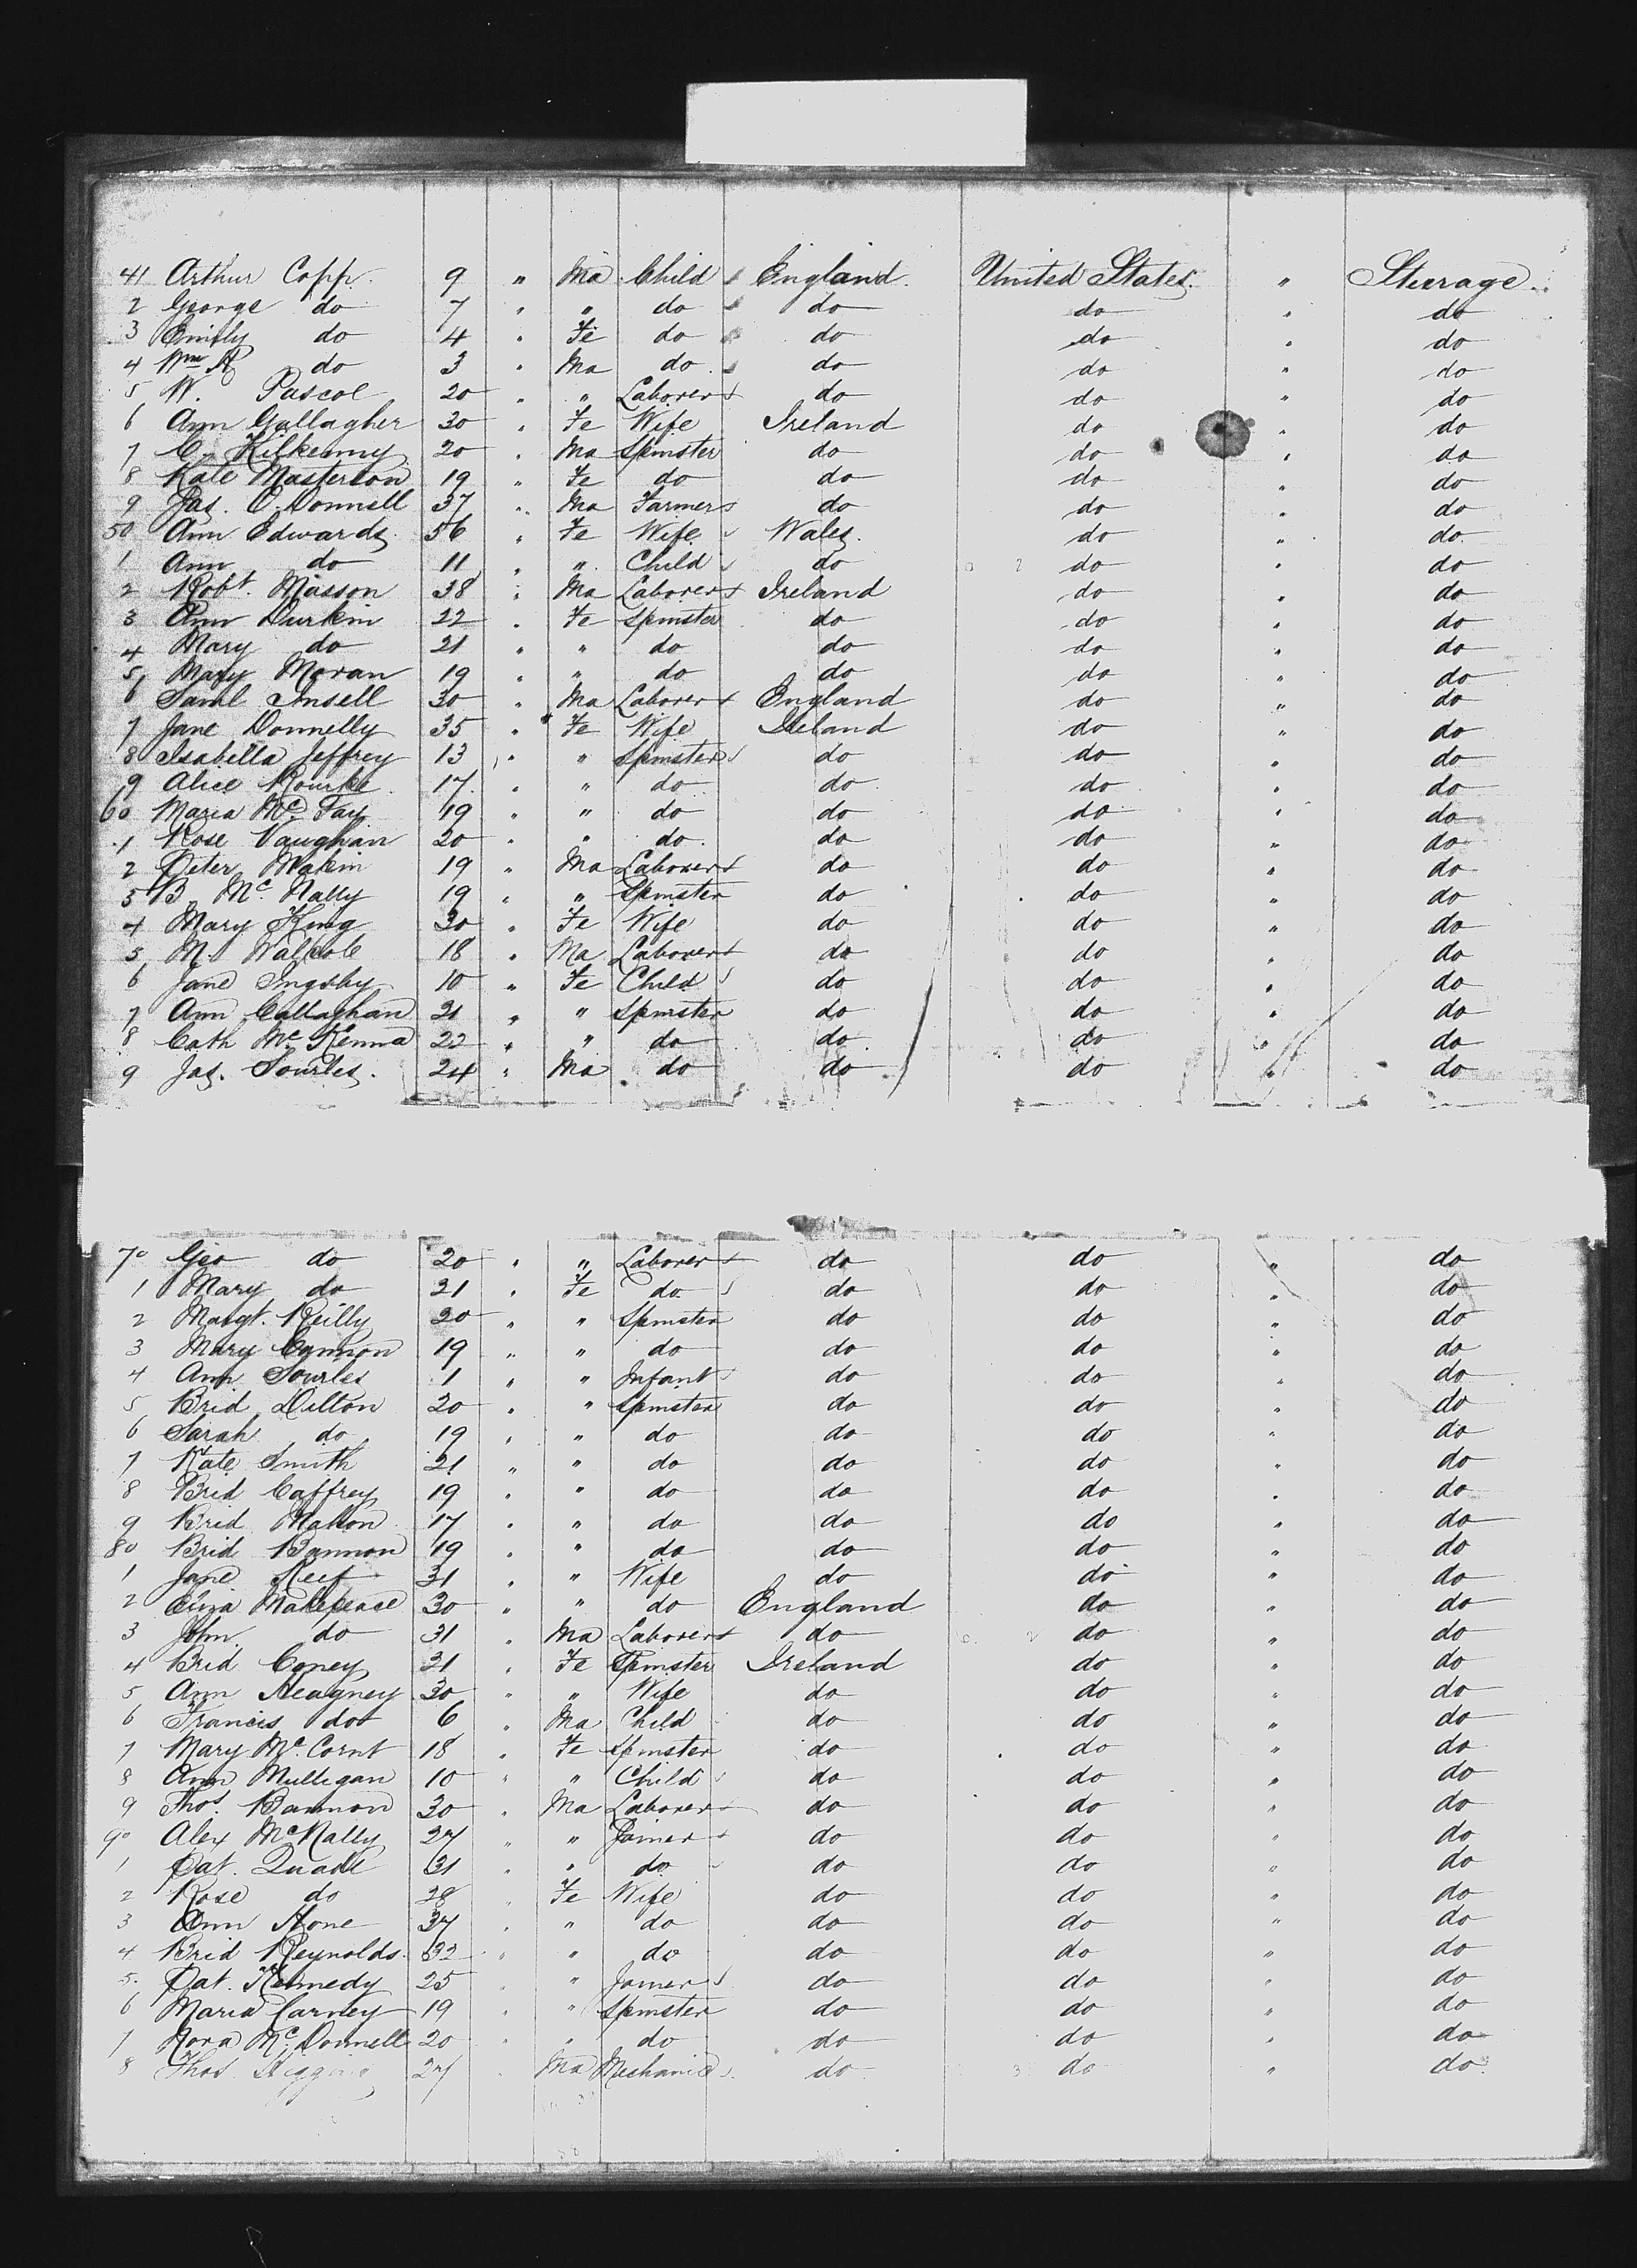 41 Arthur Copp. 9 " Ma Child England. United States. " Steerage.
2 George do 7 " " do do do " do
3 Emily do 4 " Fe do do do " do
4 Wm H do 3 " Ma do do do " do
5 W. Pascoe 20 " " Laborer do do " do
6 Ann Gallagher 30 " Fe Wife Ireland do " do
7 C. Kilkenny 20 " Ma Spinster do do " do
8 Kate Masterson 19 " Fe do do do " do
9 Jas. O.Donnell 37 " Ma Farmer do do " do
50 Ann Edwards 56 " Fe Wife Wales. do " do
1 Ann do 11 " " Child do do " do
2 Robt. Masson 38 " Ma Laborer Ireland do " do
3 Ann Durkin 22 " Fe Spinster do do " do
4 Mary do 21 " " do do do " do
5 Mary Moran 19 " " do do do " do
6 Saml Insell 30 " Ma Laborer England do " do
7 Jane Donnelly 35 " Fe Wife Ireland do " do
8 Isabella Jeffrey 13 " " Spinster do do " do
9 Alice Rourke 17 " " do do do " do
60 Maria Mc Fay 19 " " do do do " do
1 Rose Vaughan 20 " " do do do " do
2 Peter Makin 19 " Ma Laborer do do " do
3 B. Mc Nally 19 " " Spinster do do " do
4 Mary King 30 " Fe Wife do do " do
5 M. 18 " Ma Laborer do do " do
6 Jane Ingoby 10 " Fe Child do do " do
7 Ann Callaghan 21 " " Spinster do do " do
8 Cath Mc Kenna 22 " " do do do " do
9 Jas. Sourles. 24 " Ma do do do " do
70 Geo do 20 " " Laborer do do " do
1 Mary do 21 " Fe do do do " do
2 Margt. Reilly 20 " " Spinster do do " do
3 Mary Cannon 19 " " do do do " do
4 Ann Sourles 1 " " Infant do do " do
5 Brid Dilton 20 " " Spinster do do " do
6 Sarah do 19 " " do do do " do
7 Kate Smith 21 " " do do do " do
8 Brid Caffrey 19 " " do do do " do
9 Brid Mallon 17 " " do do do " do
80 Brid Bannon 19 " " do do do " do
1 Jane Keef 31 " " Wife do do " do
2 Eliza Makepeace 30 " " do England do " do
3 John do 31 " Ma Laborer do do " do
4 Brid Coney 21 " Fe Spinster Ireland do " do
5 Ann Heagney 30 " " Wife do do " do
6 Francis do 6 " Ma Child do do " do
7 Mary Mc Cornt 18 " Fe Spinster do do " do
8 Ann Mulligan 10 " " Child do do " do
9 Thos. Bannon 30 " Ma Laborer do do " do
90 Alex McNally 27 " " Joiner do do " do
1 Pat. Quade 31 " " do do do " do
2 Rose do 28 " Fe Wife do do " do
3 Ann Hone 37 " " do do do " do
4 Brid Reynolds 32 " " do do do " do
5 Pat. Kennedy 25 " " Joiner do do " do
6 Maria Carney 19 " " Spinster do do " do
7 Nora Mc Donnell 20 " " do do do " do
8 Thos. 27 " Ma Mechanic do do " do